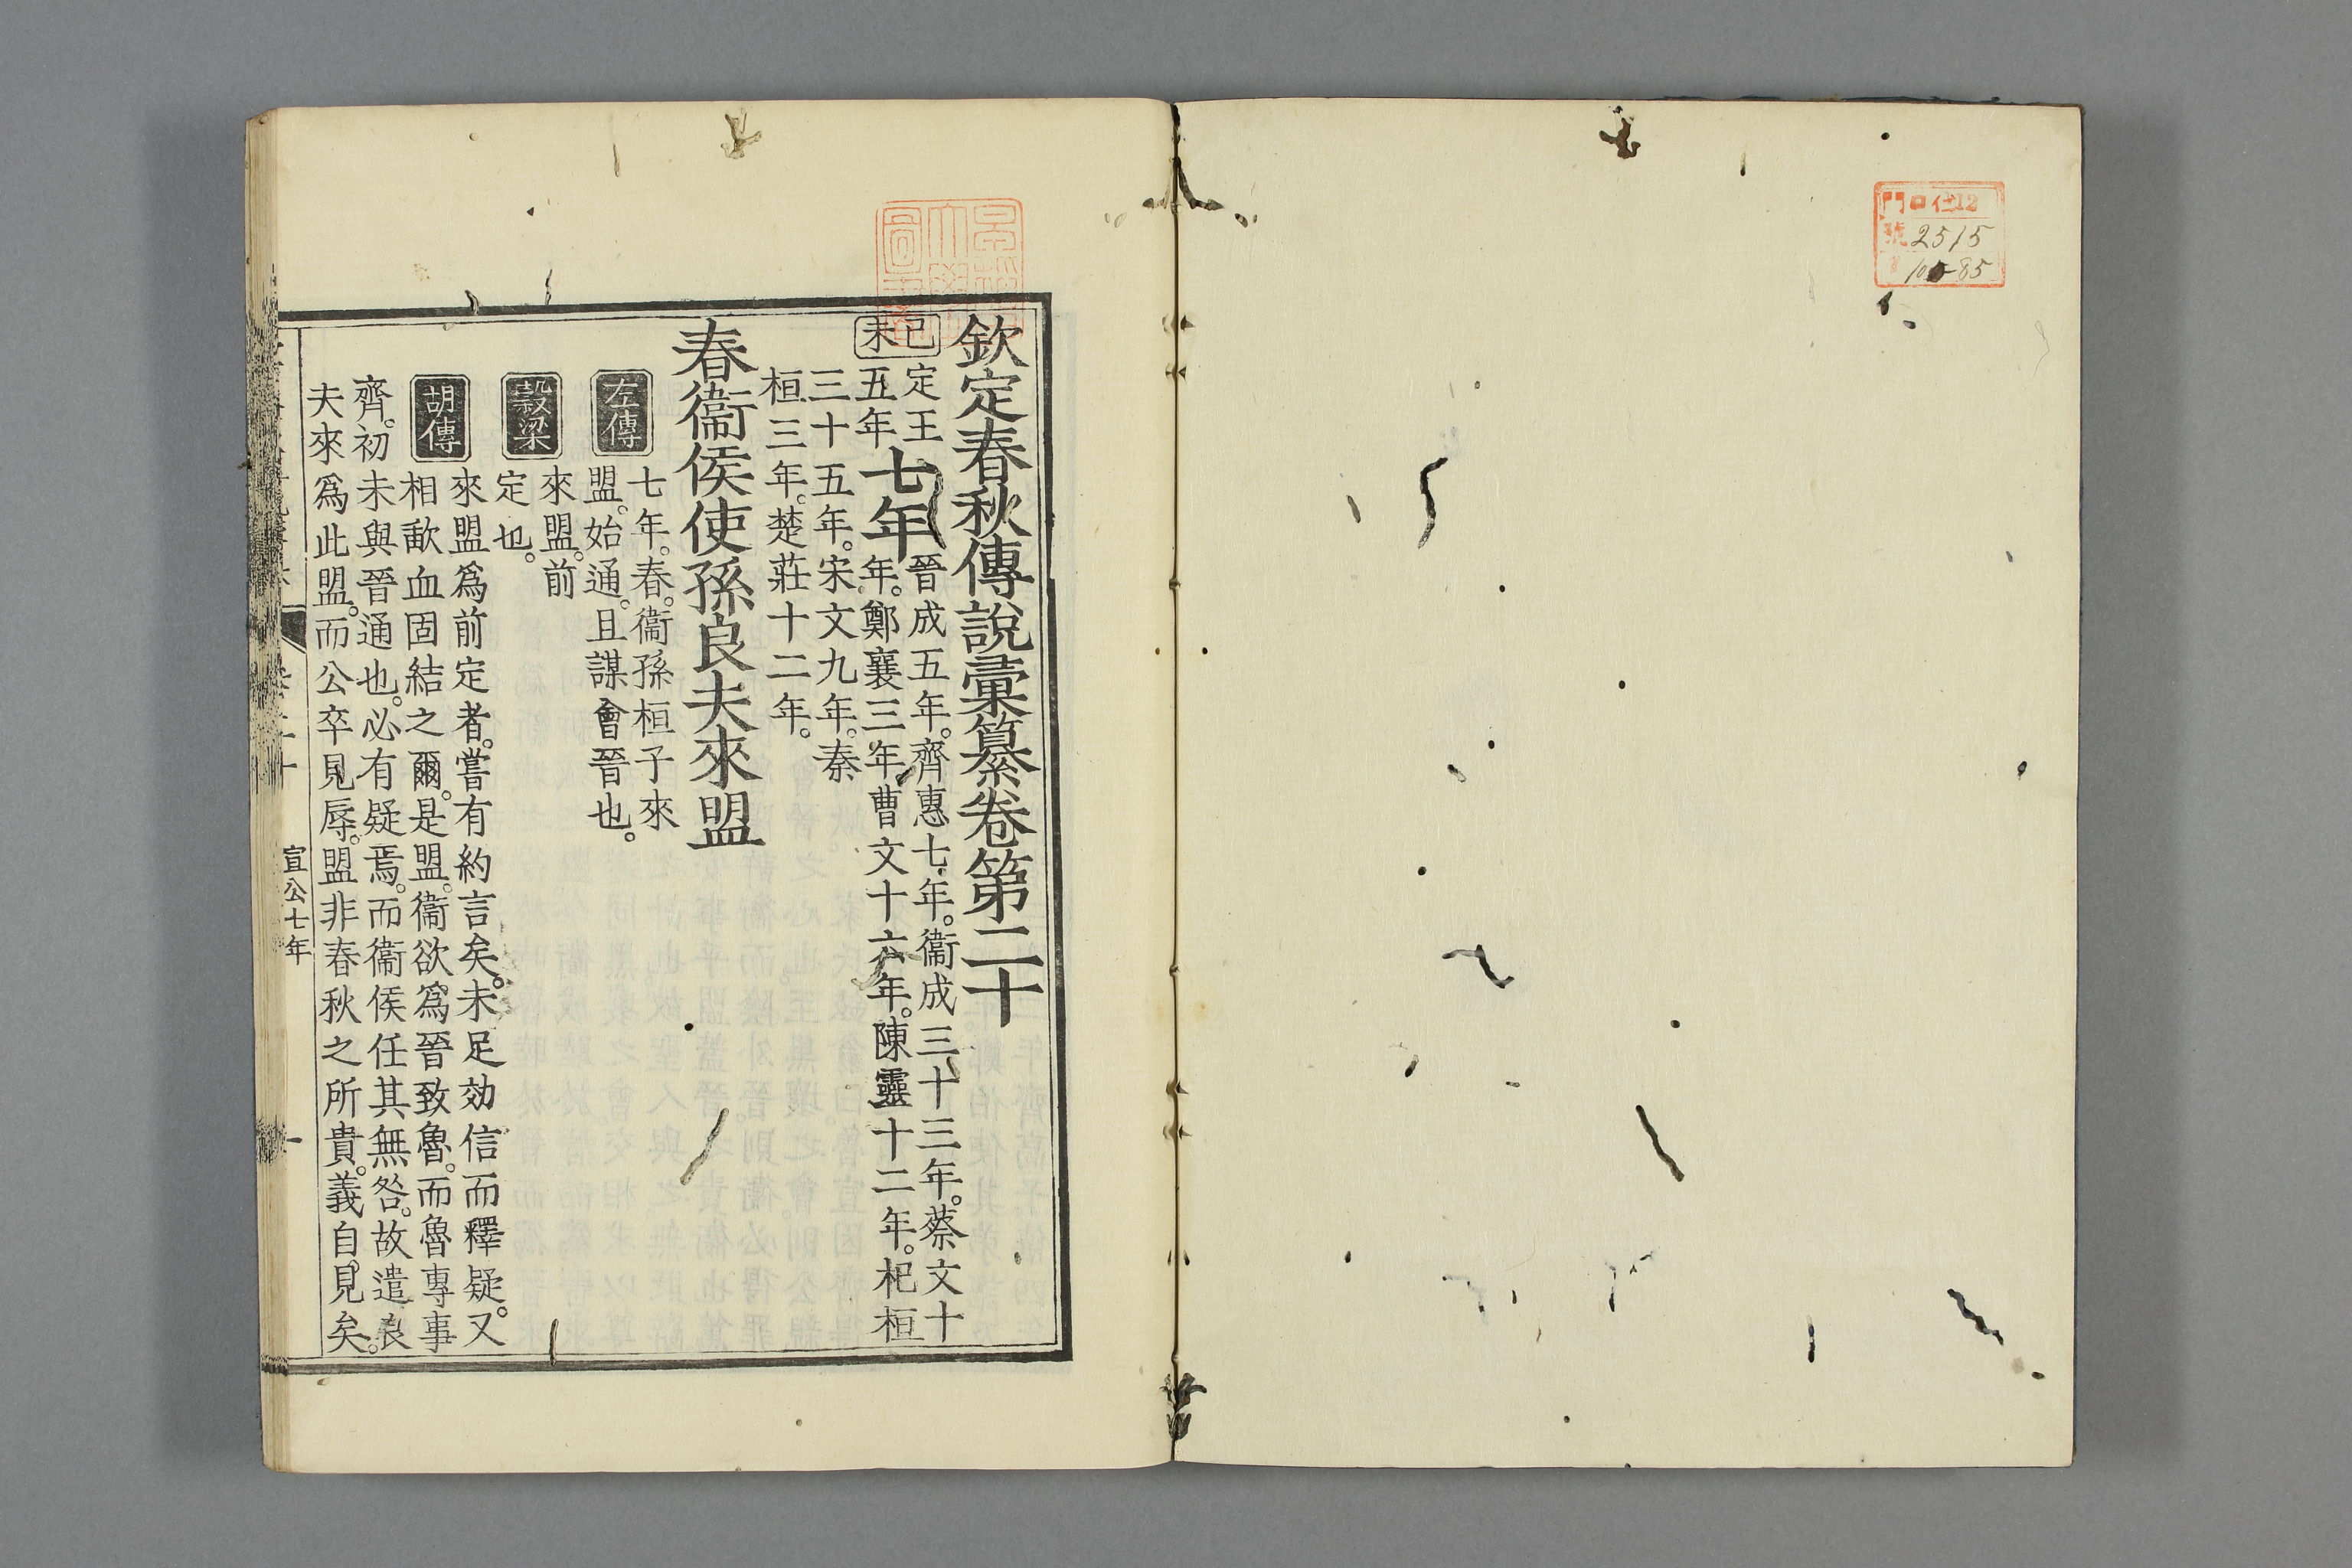 門 ロ仁12
號 2515
欽定春秋傳說彙纂卷第二十
己未
定王五年
七年
晉成五年。齊惠七年。衞成三十三年。蔡文十
年。鄭襄三年。曹文十六年。陳靈十二年。杞桓
三十五年。宋文九年。秦
桓三年。楚莊十二年。
春衞侯使孫良夫來盟
左傳
七年。春。衞孫桓子來
盟。始通。且謀會晉也。
穀梁
來盟。前
定也。
胡傳
來盟爲前定者。嘗有約言矣。未足効信而釋疑。又
相歃血固結之爾。是盟。衞欲爲晉致魯。而魯專事
齊。初未與晉通也。必有疑焉。而衞侯任其無咎。故遣良
夫來爲此盟。而公卒見辱。盟非春秋之所貴。義自見矣。
宣公七年